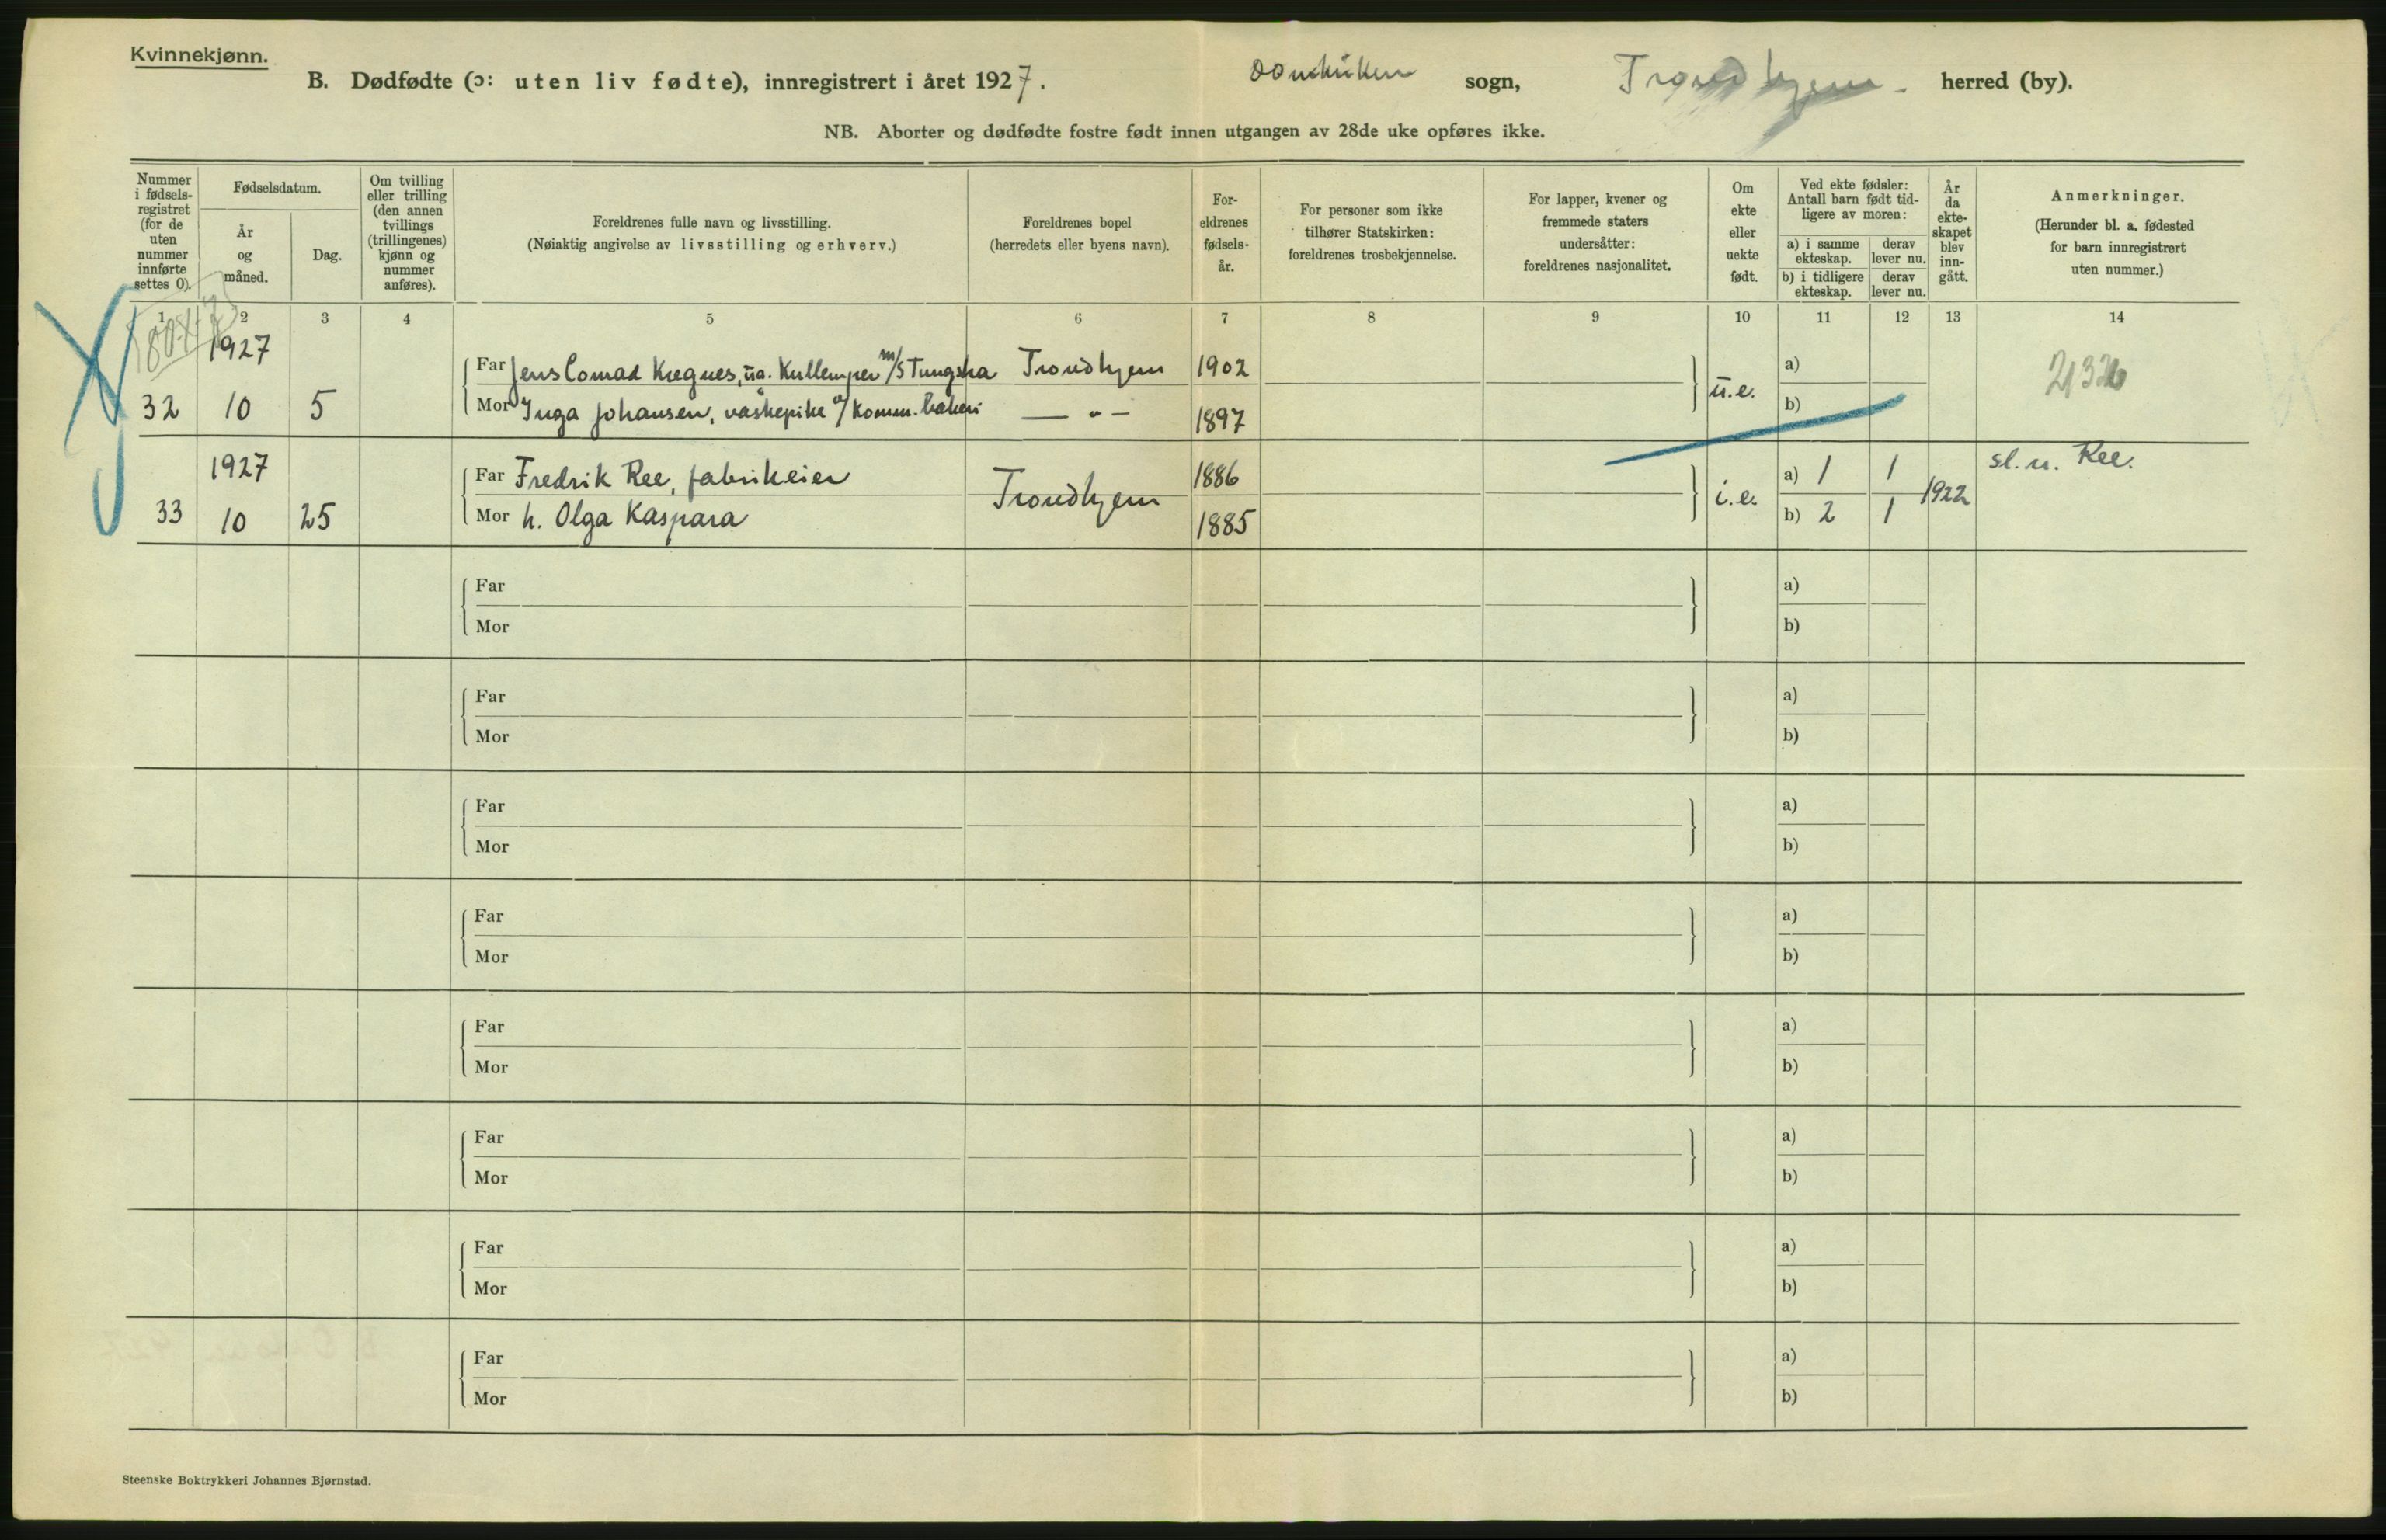 Kvinnekjønn.
B. Dødfødte (ɔ: uten liv fødte), innregistrert i året 1927. sogn, Trondhjem. herred (by).
NB. Aborter og dødfødte fostre født innen utgangen av 28de uke opføres ikke.
Nummer i fødsels-registret (for de uten nummer innførte settes 0).
Fødselsdatum.
År og måned.
Dag.
Om tvilling eller trilling (den annen tvillings (trillingenes) kjønn og nummer anføres).
Foreldrenes fulle navn og livsstilling.
(Nøiaktig angivelse av livsstilling og erhverv.)
Foreldrenes bopel
(herredets eller byens navn).
For-eldrenes fødsels-år.
For personer som ikke tilhører Statskirken: foreldrenes trosbekjennelse.
For lapper, kvener og fremmede staters undersåtter: foreldrenes nasjonalitet.
Om ekte eller uekte født.
Ved ekte fødsler: Antall barn født tid-ligere av moren:
a) i samme ekteskap.
derav lever nu.
b) i tidligere ekteskap.
derav lever nu.
År da ekte-skapet blev inn-gått.
Anmerkninger.
(Herunder bl. a. fødested for barn innregistrert uten nummer.)
1 2 3 4 5 6 7 8 9 10 11 12 13 14
1927
Far Jens Conrad m/S Trondhjem 1902 a)
32 10 5 Mor Inga Johansen, vaskepike v/ Komm. bakeri — " — 1897 u.e. b)
1927 sl. n. Ree.
Far Fredrik Ree, fabrikeier 1886 a) 1 1
33 10 25 Mor h. Olga Kaspara Trondhjem 1885 i.e. b) 2 1 1922
Far a)
Mor b)
Far a)
Mor b)
Far a)
Mor b)
Far a)
Mor b)
Far a)
Mor b)
Far a)
Mor b)
Far a)
Mor b)
Far a)
Mor b)
Steenske Boktrykkeri Johannes Bjørnstad.